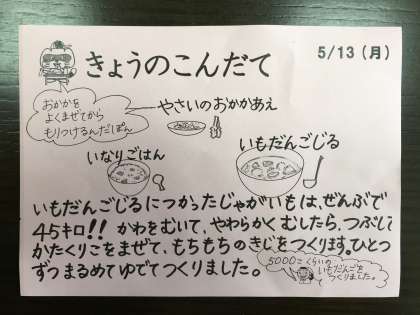 5/13(月)
きょうのこんだて
おかかを
よくまぜてから
もりつけるんだぽん
やさいのおかかあえ
いなりごはん
いもだんごじる
いもだんごじるにつかったじゃがいもは、ぜんぶで
45キロ!! かわをむいて、やわらかくむしたら、つぶして
かたくりこをまぜて、もちもちのきじをつくります。ひとつ
ずつまるめてゆでてつくりました。
5000こくらいの
いもだんごを
つくりました。